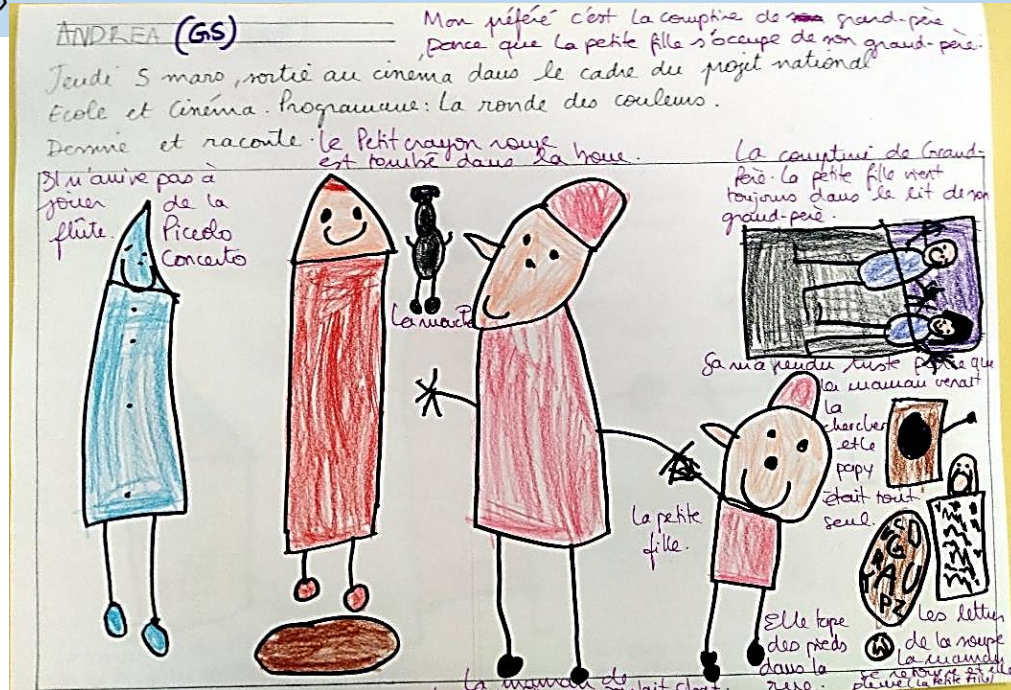 ANDREA (GS)
Mon préféré c'est la comptine de grand-père
parce que la petite fille s'occupe de son grand-père.
Jeudi 5 mars, sortie au cinéma dans le cadre du projet national
Ecole et Cinéma. Programme: La ronde des couleurs.
Dessine et raconte.
Le Petit crayon rouge
est tombé dans la boue.
Il n'arrive pas à
jouer de la
flûte. Piccolo
Concerto
La comptine de Grand-
Père. La petite fille vient
toujours dans le lit de son
grand-père.
Ça m'a rendu triste parce que
la maman venait
la
chercher
et le
papy
était tout
seul.
La petite
fille.
Elle tape
des pieds
dans la
SDGAUPZ
Les lettres
de la soupe
La maman
La maman de
(La petite fille)